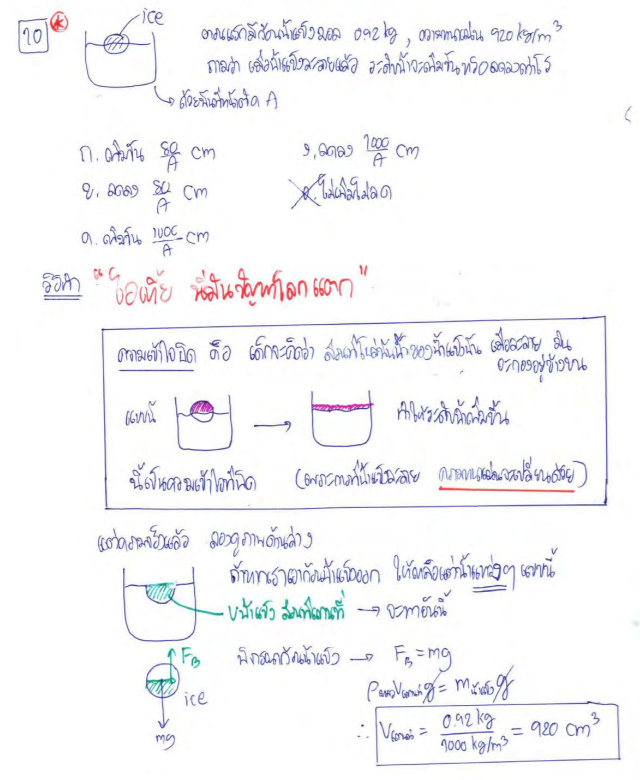 10 ice ตอนแรกมีก้อนน้ำแข็งมวล 0.92 kg , ความหนาแน่น 920 kg/m³
ถามว่า เมื่อน้ำแข็งละลายแล้ว ระดับน้ำจะเพิ่มขึ้นหรือลดลงเท่าไร
ถ้วยพื้นที่หน้าตัด A
ก. เพิ่มขึ้น 80/A cm
ข. ลดลง 80/A cm
ค. เพิ่มขึ้น 1000/A cm
ง. ลดลง 1000/A cm
จ. ไม่เพิ่มไม่ลด
วิธีทำ " นี่มันปัญหาโลกแตก "
ความเข้าใจผิด คือ เด็กจะคิดว่า ส่วนที่โผล่พ้นน้ำของน้ำแข็งนั้น เมื่อละลาย มัน
จะกองอยู่ข้างบน
แบบนี้ ทำให้ระดับน้ำเพิ่มขึ้น
นี่เป็นความเข้าใจที่ผิด (เพราะการที่น้ำแข็งละลาย ความหนาแน่นจะเปลี่ยนด้วย)
แต่ความจริงแล้ว ลองดูภาพด้านล่าง
ถ้าหากเราเอาก้อนน้ำแข็งออก ให้เหลือแต่น้ำ แบบนี้
Vน้ำแข็ง ส่วนที่แทนที่ → จะหาอันนี้
F_B ice mg
พิจารณาก้อนน้ำแข็ง → F_B = mg
ρ V g = m น้ำแข็ง g
∴ V = 0.92 kg / 1000 kg/m³ = 920 cm³